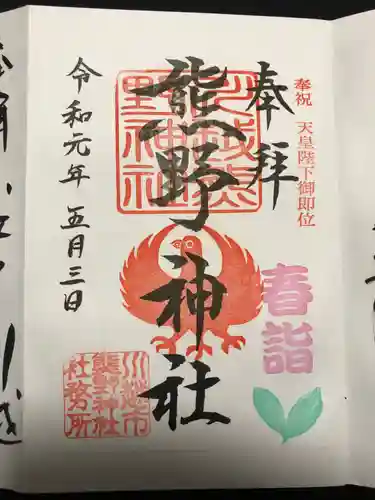 奉祝 天皇陛下御即位
奉拝
川越熊野神社
熊野神社
春詣
令和元年五月三日
川越市
熊野神社
社務所